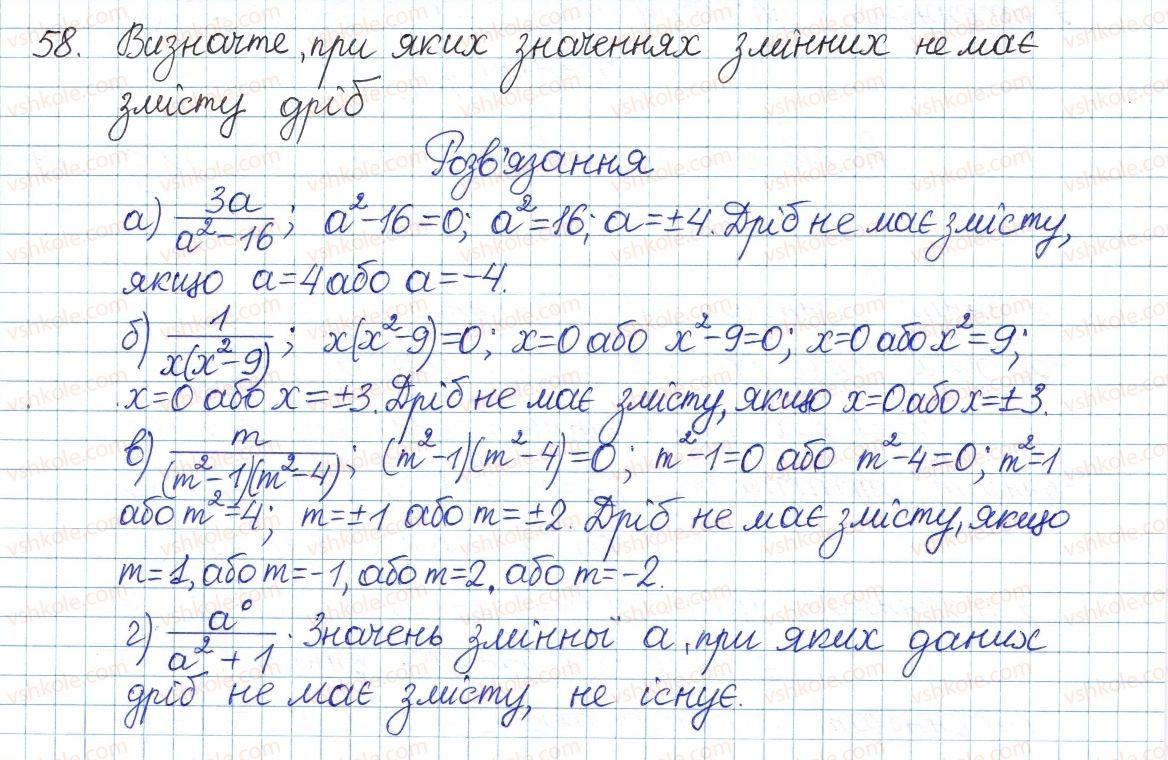 58. Визначте, при яких значеннях змінних не має
змісту дріб
Розв'язання
а) 3a/(a²-16); a²-16=0; a²=16; a=±4. Дріб не має змісту,
якщо a=4 або a=-4.
б) 1/(x(x²-9)); x(x²-9)=0; x=0 або x²-9=0; x=0 або x²=9;
x=0 або x=±3. Дріб не має змісту, якщо x=0 або x=±3.
в) m/((m²-1)(m²-4)); (m²-1)(m²-4)=0; m²-1=0 або m²-4=0; m²=1
або m²=4; m=±1 або m=±2. Дріб не має змісту, якщо
m=1, або m=-1, або m=2, або m=-2.
г) a⁰/(a²+1). Значень змінної a, при яких даних
дріб не має змісту, не існує.